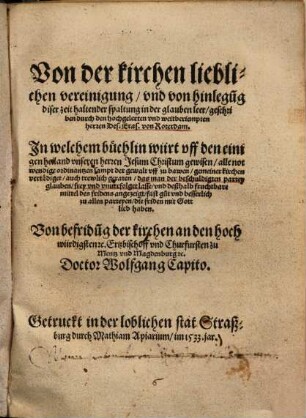 Von der kirchen liebli-
chen vereinigung / vnd von hinlegũg
diser zeit haltender spaltung in der glauben leer / geschri
ben durch den hochgelerten vnd weitberiempten
herren Des. Eras. von Roterdam.
In welchem büchlin würt vff den eini
gen heiland vnseren herren Jesum Christum gewisen / alle not
wendige ordinantzen sampt der gewalt vff zu bawen / gemeiner kirchen
vertädiget / auch trewlich geraten / das man der beschuldigten partey
glauben / frey vnd
mittel des fridens angezeigt / fast gůt vnd besserlich
zu allen parteyen / die friden mit Gott
lieb haben.
Von befridũg der kirchen an den hoch
würdigsten ꝛc. Ertzbischoff vnd Churfursten zu
Mentz vnd Magdenburg ꝛc.
Doctor Wolfgang Capito.
Getruckt in der loblichen stat Straß-
burg durch Mathiam Apiarium / im 1533. jar.